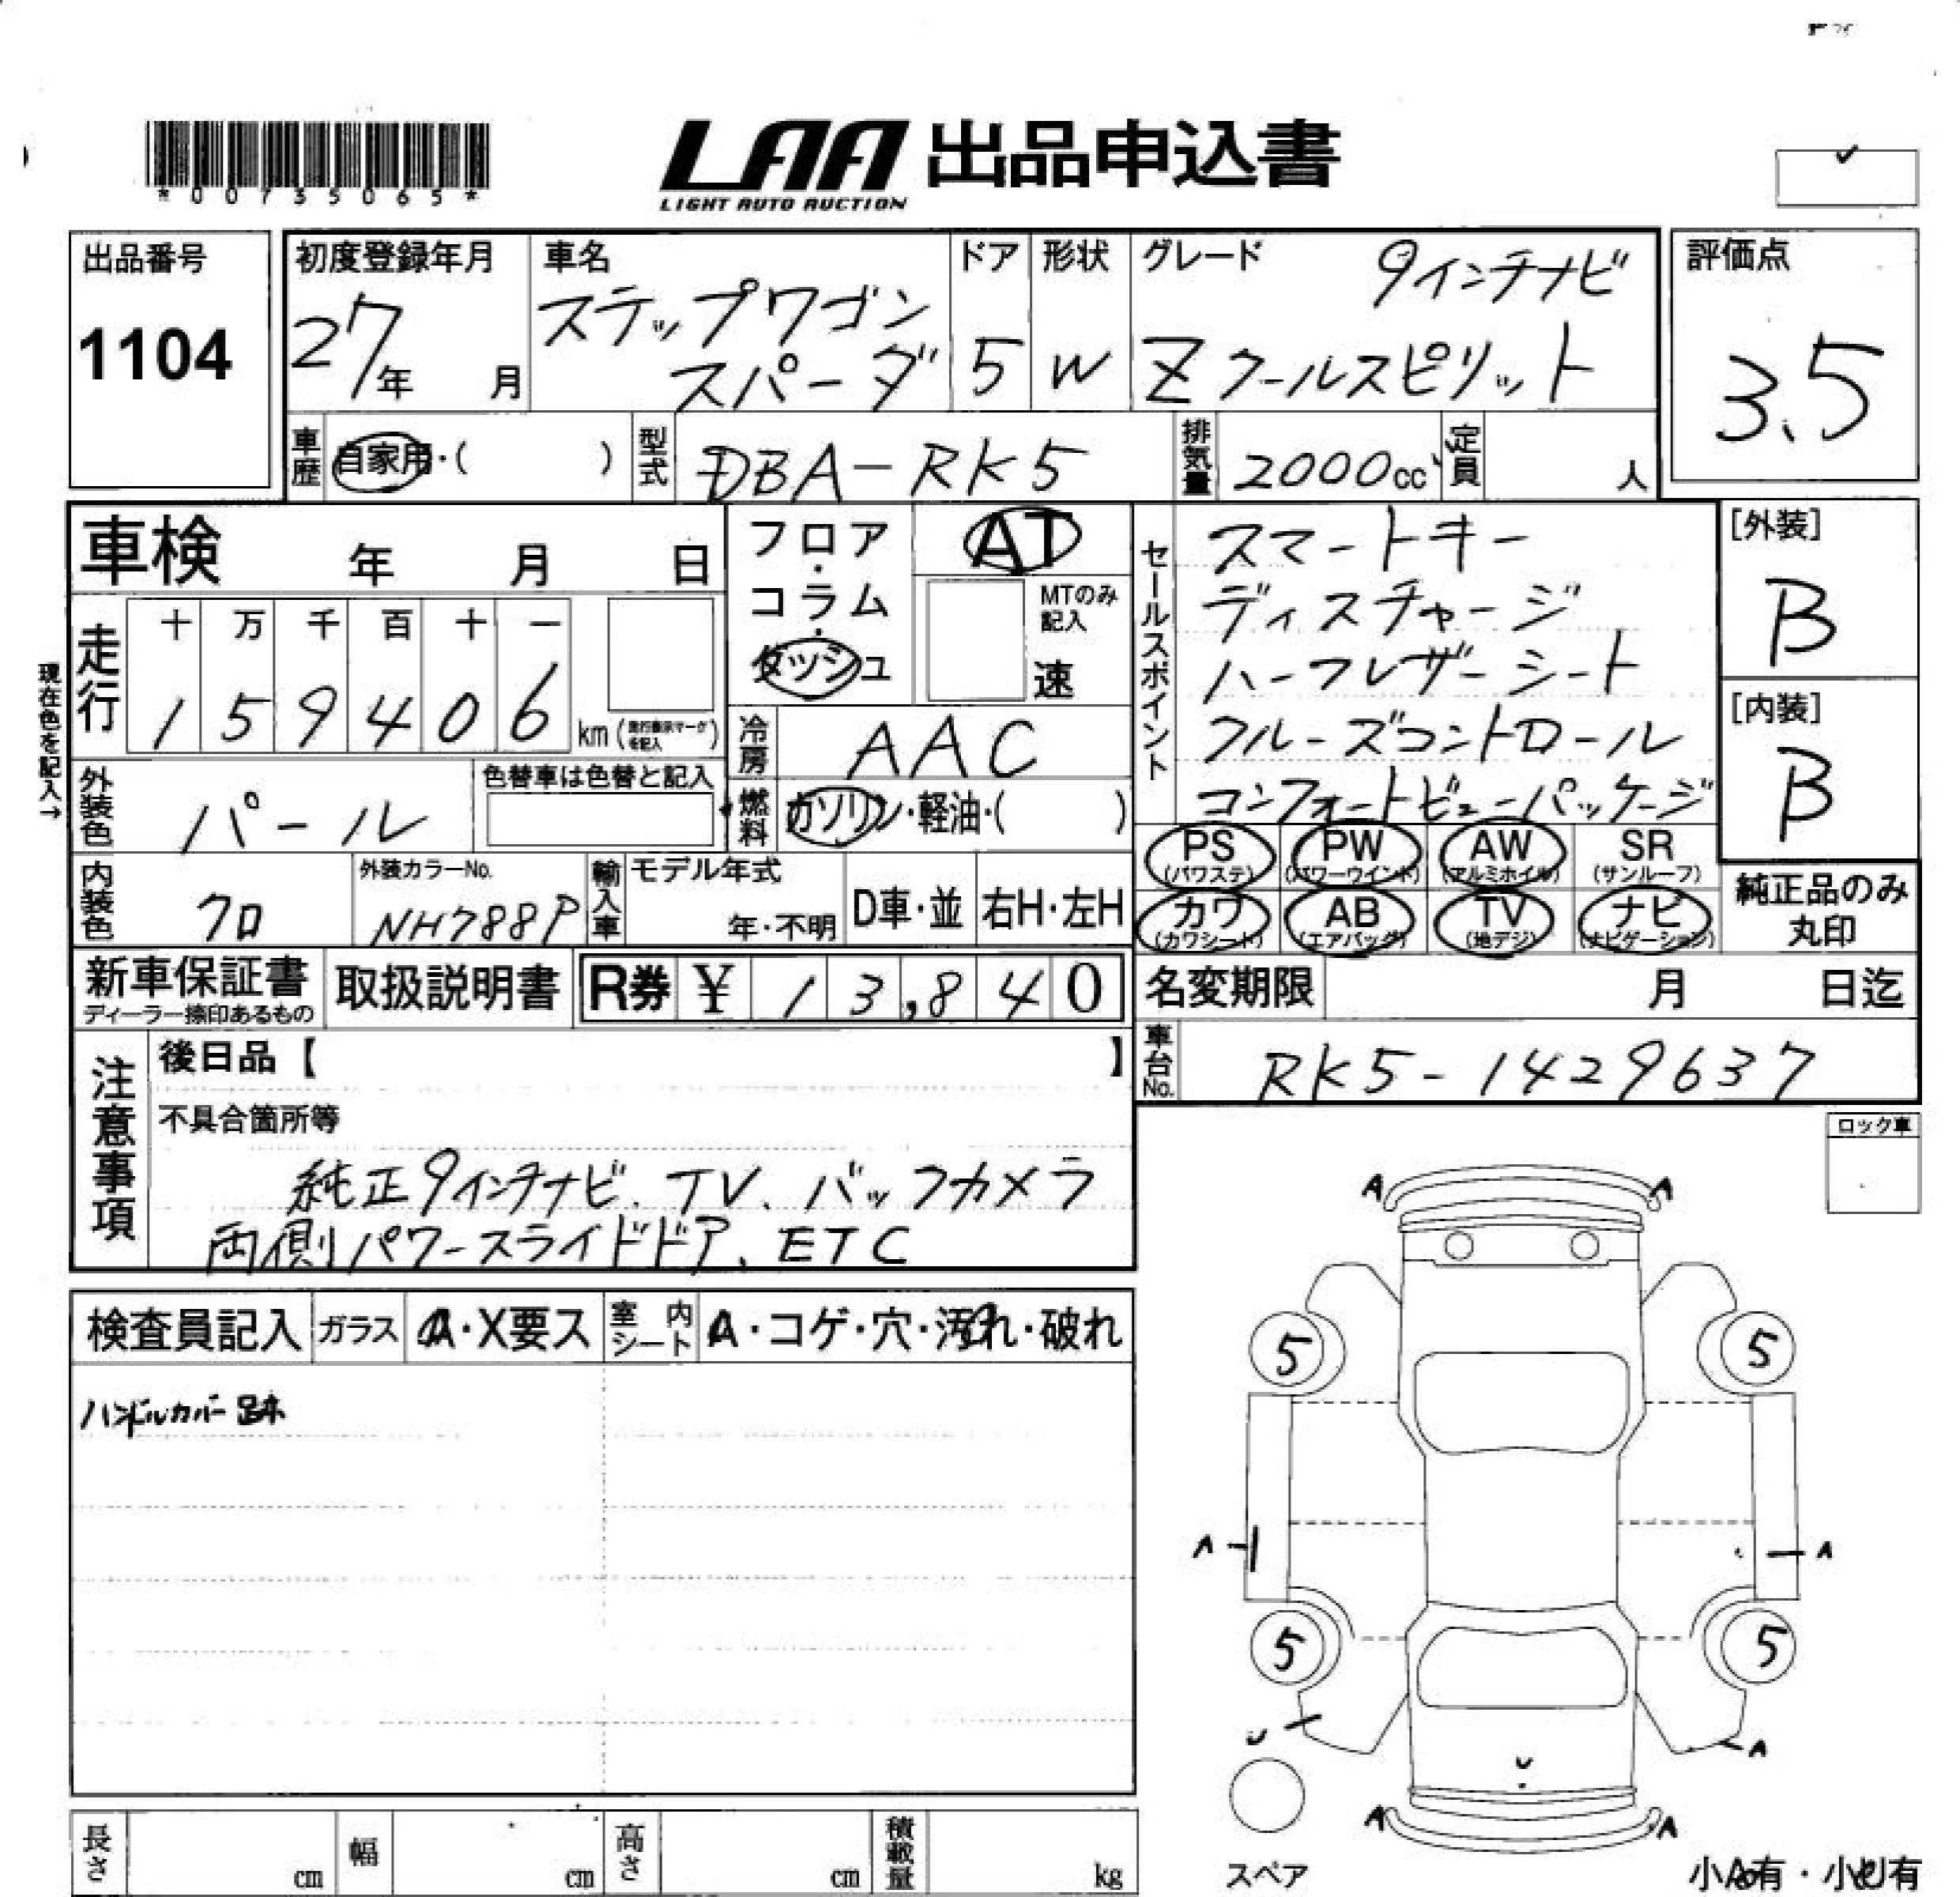 *00735065*
LAA 出品申込書
LIGHT AUTO AUCTION
出品番号
1104
初度登録年月
27年 月
車名
ステップワゴン
スパーダ
ドア
5
形状
W
グレード
9インチナビ
Zクールスピリット
評価点
3.5
車歴 自家用・( )
型式 DBA-RK5
排気量 2000cc
定員 人
車検 年 月 日
フロア・コラム・ダッシュ
AT
MTのみ記入
速
セールスポイント
スマートキー
ディスチャージ
ハーフレザーシート
クルーズコントロール
コンフォートビューパッケージ
[外装]
B
[内装]
B
現在色を記入→
走行
十 万 千 百 十 一
1 5 9 4 0 6 km
冷房 AAC
外装色 パール
色替車は色替と記入
燃料 ガソリン・軽油・( )
PS (パワステ) PW (パワーウインド) AW (アルミホイル) SR (サンルーフ)
カワ (カワシート) AB (エアバッグ) TV (地デジ) ナビ (ナビゲーション)
純正品のみ丸印
内装色 クロ
外装カラーNo.
NH788P
輸入車
モデル年式
年・不明
D車・並
右H・左H
新車保証書
ディーラー捺印あるもの
取扱説明書
R券 ¥ 13,840
名変期限 月 日迄
車台No. RK5-1429637
注意事項
後日品【 】
不具合箇所等
純正9インチナビ、TV、バックカメラ
両側パワースライドドア、ETC
ロック車
検査員記入
ガラス A・X要ス
室内シート A・コゲ・穴・汚れ・破れ
ハンドルカバー跡
A A
5 5
A A
5 5
U A
U
A A
スペア
小A有・小U有
長さ cm
幅 cm
高さ cm
積載量 kg